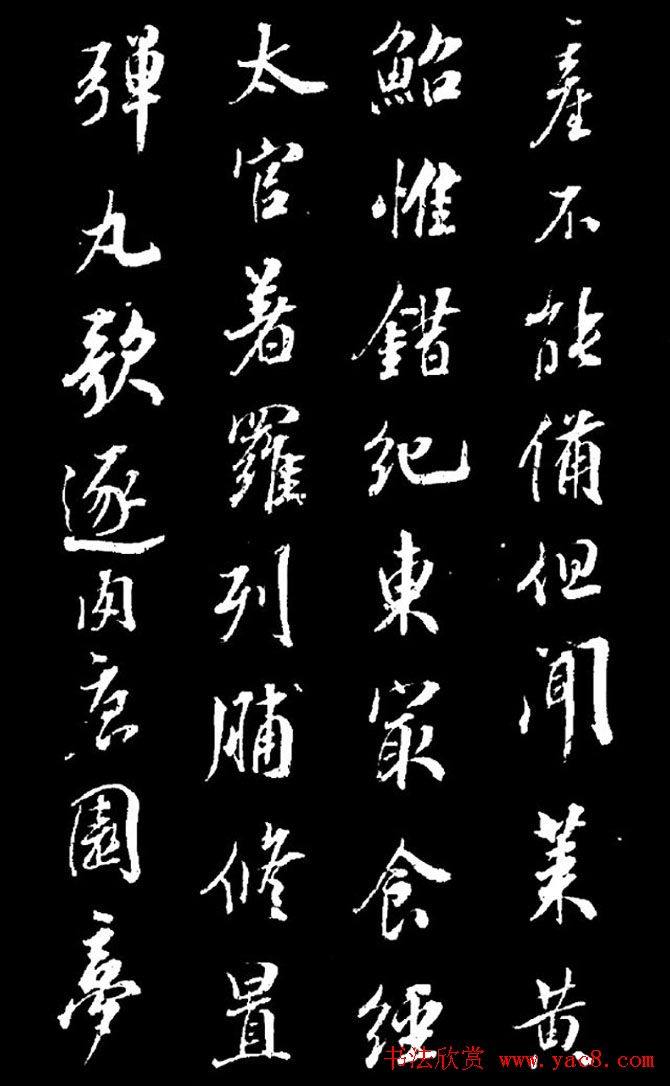 產不能備但聞萊黃
鮐惟錯紀東冣食經
太官著羅列脯修置
彈丸歌逐肉意園夢
书法欣赏 www.yac8.com